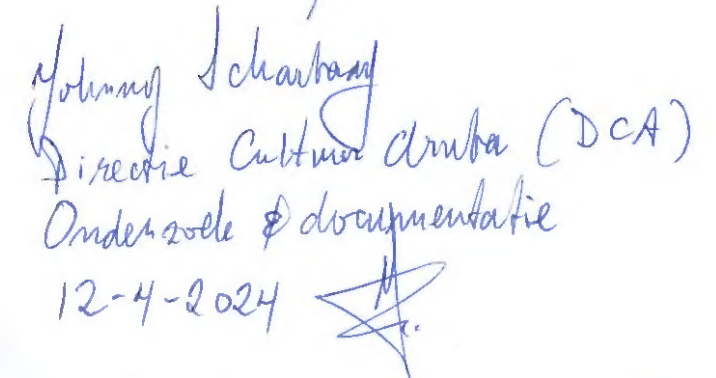 Johnny Scharbaay
Directie Cultura Aruba (DCA)
Onderzoek & documentatie
12-4-2024